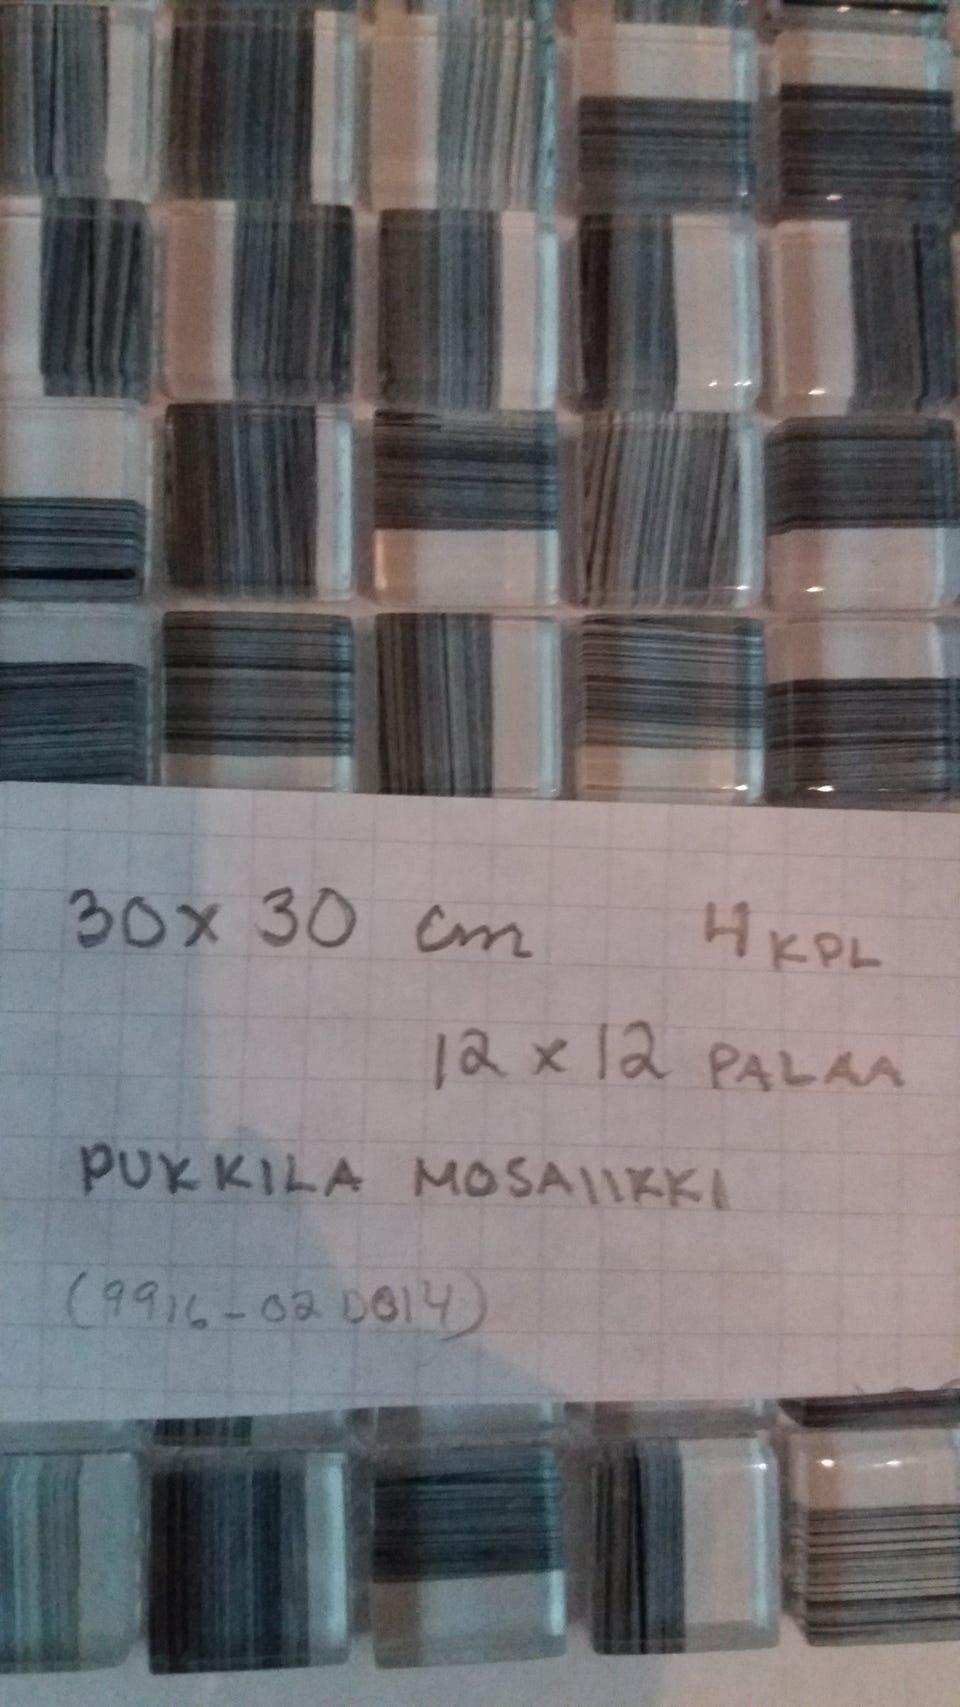 30x30 cm 4 KPL
12 x 12 PALAA
PUKKILA MOSAIIKKI
(9916-02D014)